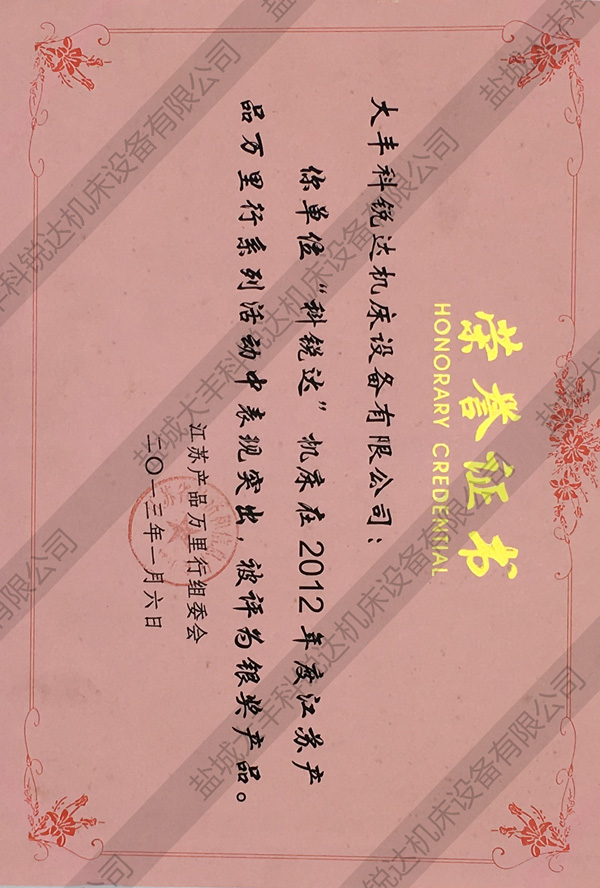 荣誉证书
HONORARY CREDENTIAL
大丰科锐达机床设备有限公司：
你单位“科锐达”机床在2012年度江苏产
品万里行系列活动中表现突出，被评为银奖产品。
江苏产品万里行组委会
二〇一三年一月六日
盐城大丰科锐达机床设备有限公司